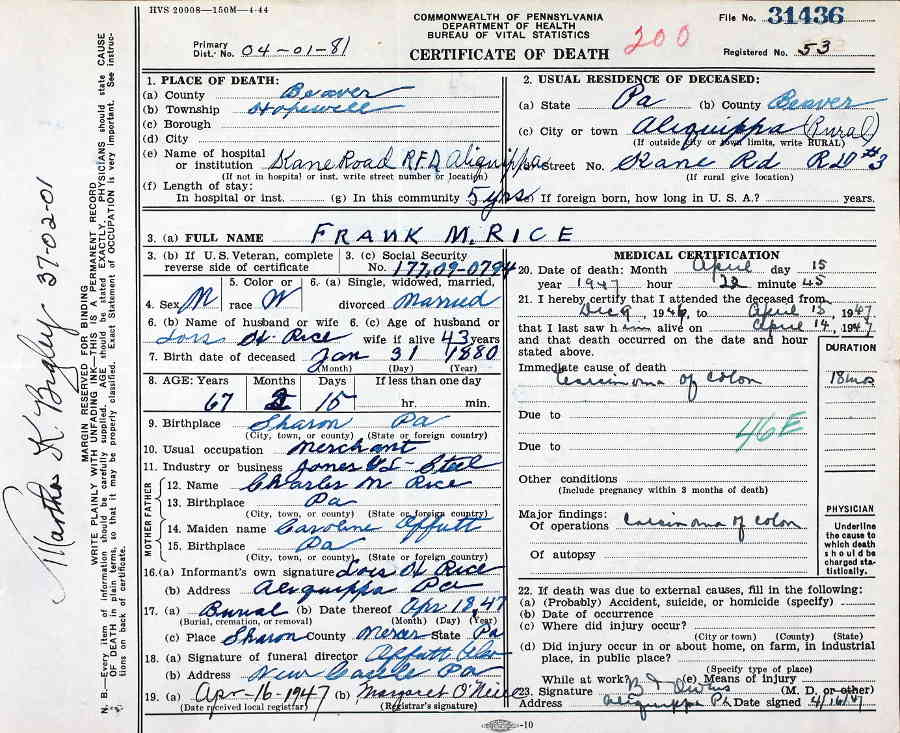 HVS 20008—150M—4-44
COMMONWEALTH OF PENNSYLVANIA
DEPARTMENT OF HEALTH
BUREAU OF VITAL STATISTICS
CERTIFICATE OF DEATH
Primary Dist. No. 04-01-81
200
File No. 31436
Registered No. 53
1. PLACE OF DEATH:
(a) County Beaver
(b) Township Hopewell
(c) Borough
(d) City
(e) Name of hospital or institution Kane Road R.F.D. Aliquippa
(If not in hospital or inst. write street number or location)
(f) Length of stay:
In hospital or inst. (g) In this community 5 yrs
2. USUAL RESIDENCE OF DECEASED:
(a) State Pa (b) County Beaver
(c) City or town Aliquippa (Rural)
(If outside city or town limits, write RURAL)
Street No. Kane Rd RD #3
(If rural give location)
(e) If foreign born, how long in U. S. A.? years.
3. (a) FULL NAME FRANK M. RICE
3. (b) If U. S. Veteran, complete reverse side of certificate
3. (c) Social Security No. 177-09-0794
4. Sex M
5. Color or race W
6. (a) Single, widowed, married, divorced Married
6. (b) Name of husband or wife Lois H. Rice
6. (c) Age of husband or wife if alive 43 years
7. Birth date of deceased Jan 31 1880
(Month) (Day) (Year)
8. AGE: Years Months Days If less than one day
67 2 15 hr. min.
9. Birthplace Sharon Pa
(City, town, or county) (State or foreign country)
10. Usual occupation Merchant
11. Industry or business Jones & L- Steel
FATHER
12. Name Charles M Rice
13. Birthplace Pa
(City, town, or county) (State or foreign country)
MOTHER
14. Maiden name Caroline Offutt
15. Birthplace Pa
(City, town, or county) (State or foreign country)
16.(a) Informant's own signature Lois H Rice
(b) Address Aliquippa Pa
17. (a) Burial (b) Date thereof Apr 18, 47
(Burial, cremation, or removal) (Month) (Day) (Year)
(c) Place Sharon County Mercer State Pa
18. (a) Signature of funeral director Offutt
(b) Address New Castle Pa
19. (a) Apr-16-1947 (b) Margaret O'Neill
(Date received local registrar) (Registrar's signature)
MEDICAL CERTIFICATION
20. Date of death: Month April day 15
year 1947 hour 22 minute 45
21. I hereby certify that I attended the deceased from
Dec 9, 1946, to April 15, 1947
that I last saw him alive on April 14, 1947
and that death occurred on the date and hour
stated above.
DURATION
Immediate cause of death
Carcinoma of colon 18 mos
Due to
46E
Due to
Other conditions
(Include pregnancy within 3 months of death)
Major findings:
Of operations Carcinoma of colon
Of autopsy
PHYSICIAN
Underline
the cause to
which death
should be
charged sta-
tistically.
22. If death was due to external causes, fill in the following:
(a) (Probably) Accident, suicide, or homicide (specify)
(b) Date of occurrence
(c) Where did injury occur?
(City or town) (County) (State)
(d) Did injury occur in or about home, on farm, in industrial
place, in public place?
(Specify type of place)
While at work? (e) Means of injury
23. Signature (M. D. or other)
Address Aliquippa Pa Date signed 4/16/47
-10
Martha K Bigley 37-02-01
MARGIN RESERVED FOR BINDING
WRITE PLAINLY WITH UNFADING INK—THIS IS A PERMANENT RECORD
N. B.—Every item of information should be carefully supplied. AGE should be stated EXACTLY. PHYSICIANS should state CAUSE
OF DEATH in plain terms, so that it may be properly classified. Exact Statement of OCCUPATION is very important. See instruc-
tions on back of certificate.